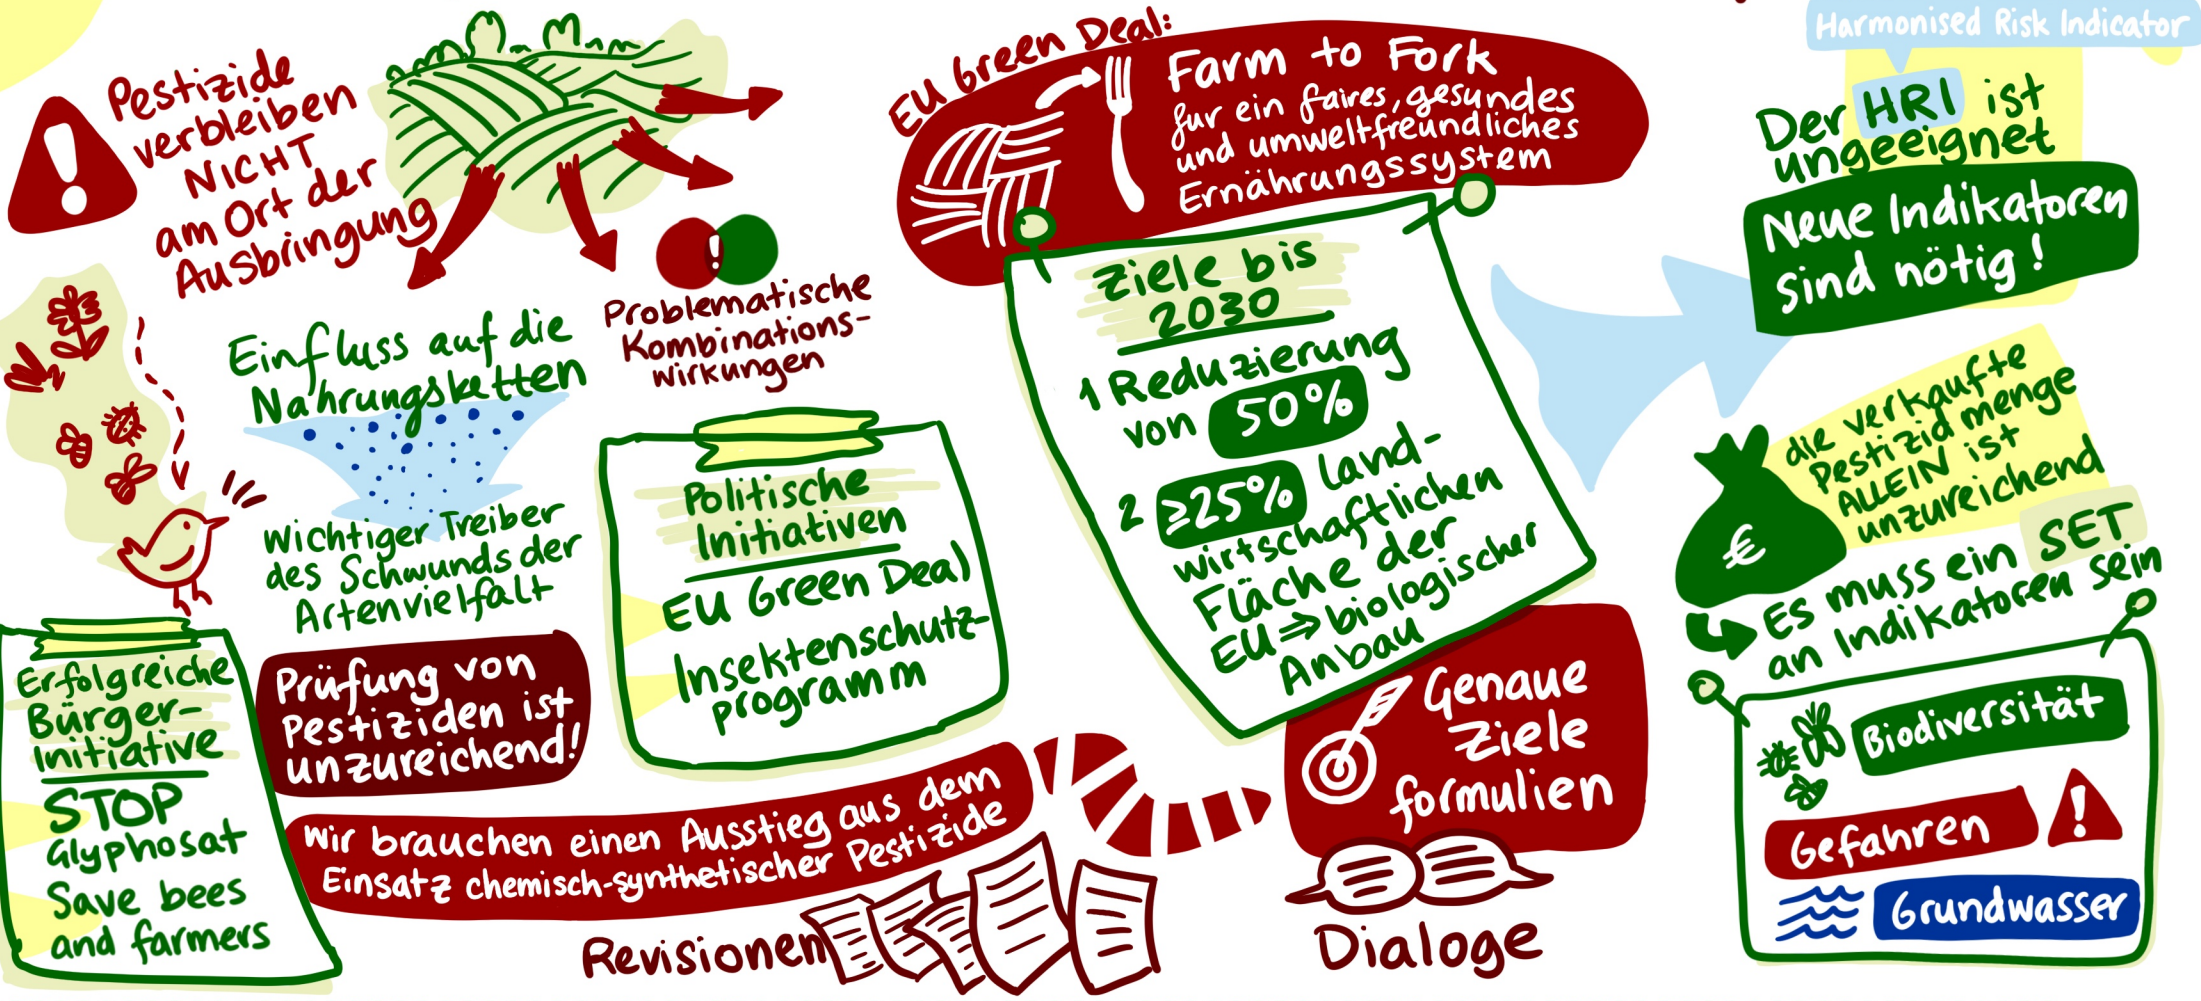 Pestizide
verbleiben
NICHT
am Ort der
Ausbringung
Einfluss auf die
Nahrungsketten
Wichtiger Treiber
des Schwunds der
Artenvielfalt
Problematische
Kombinations-
wirkungen
Erfolgreiche
Bürger-
initiative
STOP
Glyphosat
Save bees
and farmers
Prüfung von
Pestiziden ist
unzureichend!
Politische
Initiativen
EU Green Deal
Insektenschutz-
programm
Wir brauchen einen Ausstieg aus dem
Einsatz chemisch-synthetischer Pestizide
Revisionen
EU Green Deal:
Farm to Fork
fur ein faires, gesundes
und umweltfreundliches
Ernährungssystem
Ziele bis
2030
1 Reduzierung
von 50%
2 ≥25% land-
wirtschaftlichen
Fläche der
EU ⇒ biologischer
Anbau
Genaue
Ziele
formulien
Dialoge
Harmonised Risk Indicator
Der HRI ist
ungeeignet
Neue Indikatoren
sind nötig!
die verkaufte
Pestizidmenge
ALLEIN ist
unzureichend
€
Es muss ein SET
an Indikatoren sein
Biodiversität
Gefahren
Grundwasser